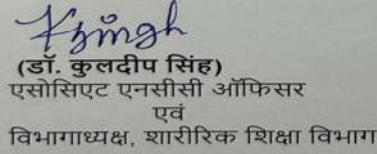 Ksingh
(डॉ. कुलदीप सिंह)
एसोसिएट एनसीसी ऑफिसर
एवं
विभागाध्यक्ष, शारीरिक शिक्षा विभाग